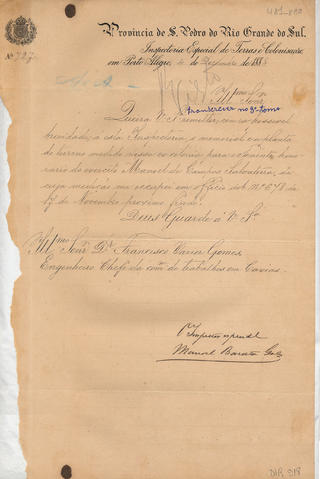 481-890
Provincia de S. Pedro do Rio Grande do Sul.
Inspectoria Especial de Terras e Colonisação
em Porto Alegre, de Dezembro de 188
Nº 727
Ill.mo Snr
transcreva no 3º tomo
Queira V. Sª remetter, com a possivel
brevidade, a esta Inspectoria, o memorial e a planta
do terreno medido nessa colonia para o Tenente hono
rario do exercito Manoel de Campos, de
cuja medição me occupei em officio sob nº 678 de
17 de Novembro proximo findo.
Deus Guarde a V. Sª
Ill.mo Snr. Dr. Francisco Xavier Gomes,
Engenheiro Chefe da com.ão de trabalhos em Caxias.
O Inspector especial
Manoel Barata Góes
DIR 918